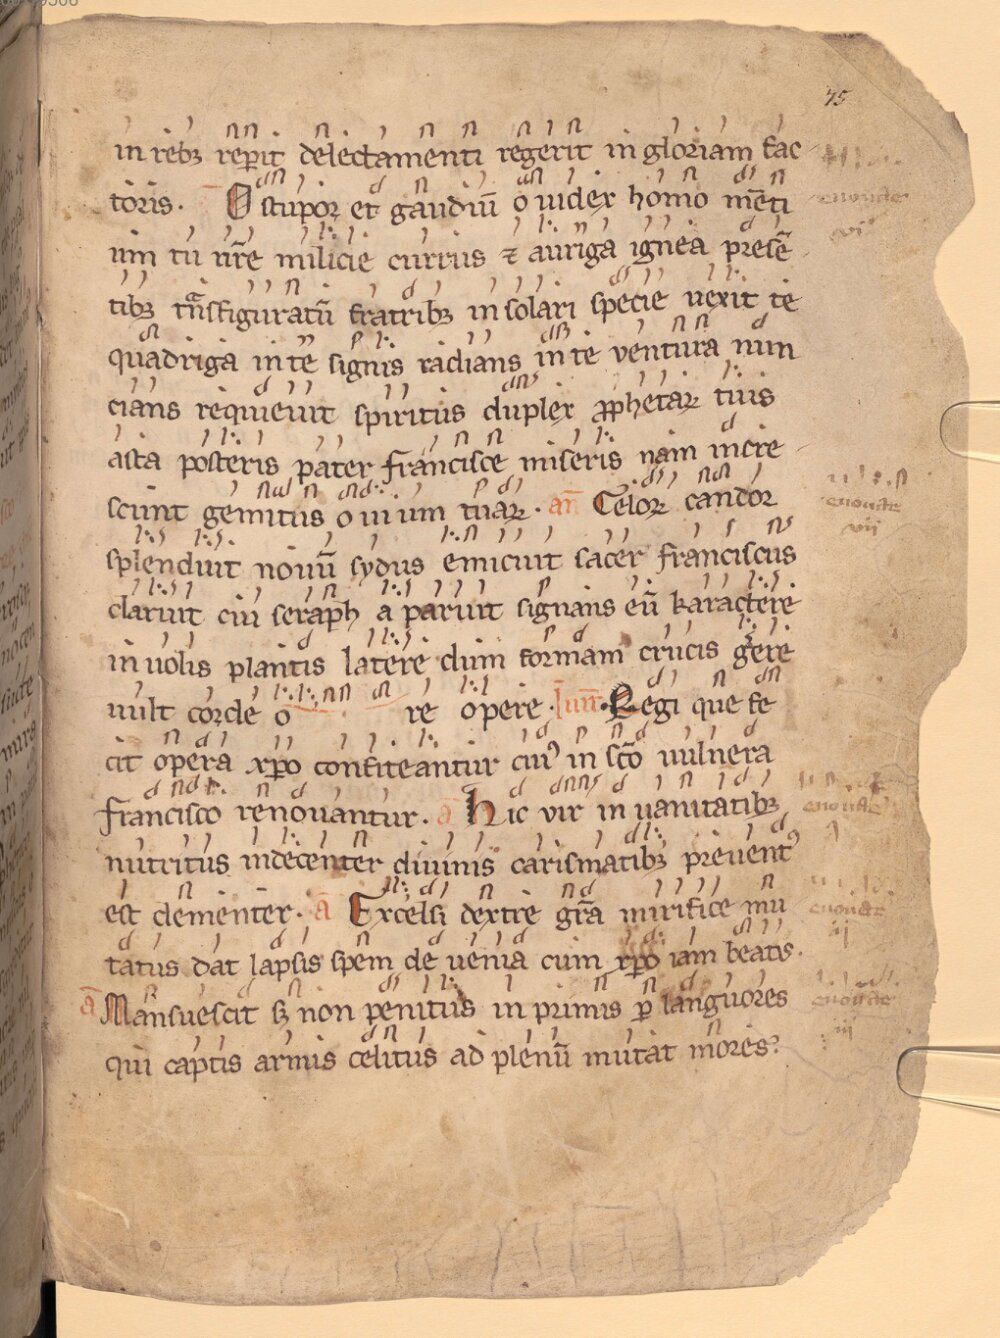 75
in reb3 rep̲it delectamenti regerit in gloriam fac
toris. O stupor et gaudiū o iudex homo mēti
um tu nr̄e milicie currus ⁊ auriga ignea presē
tib3 tn̄sfiguratū fratrib3 in solari specie uexit te
quadriga in te signis radians in te ventura nun
cians requieuit spiritus duplex ꝓphetaꝝ tuis
asta posteris pater francisce miseris nam incre
scunt gemitus o ui um tuaꝝ. an̄ Celoꝝ candor
splenduit nouū sydus emicuit sacer franciscus
claruit cui seraph a paruit signans eū karactere
in uolis plantis latere dum formam crucis gerere
uult corde o re opere. Regi que fe
cit opera xp̄o confiteantur cuiꝰ in sc̄o uulnera
francisco renouantur. ā Hic vir in uanitatib3
nutritus indecenter diuinis carismatib3 preuentꝰ
est clementer. ā Excelsi dextre gr̄a mirifice mu
tatus dat lapsis spem de uenia cum xp̄o iam beatis.
ā Mansuescit s3 non penitus in primis ꝑ languores
qui captis armis celitus ad plenū mutat mores.